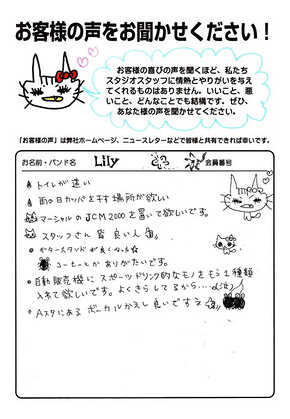 お客様の声をお聞かせください！
お客様の喜びの声を聞くほど、私たち
スタジオスタッフに情熱とやりがいを与え
てくれるものはありません。いいこと、悪
いこと、どんなことでも結構です。ぜひ、
あなた様の声を聞かせてください。
「お客様の声」は弊社ホームページ、ニュースレターなどで皆様と共有できれば幸いです。
お名前・バンド名 Lily 会員番号
トイレが遠い
雨の日カッパを干す場所が欲しい
マーシャルのJCM2000を置いて欲しいです。
スタッフさん皆良い人
ギタースタンドが良くなった
コーヒーとかありがたいです。
自動販売機にスポーツドリンク的なモノをもう1種類
入れて欲しいです。よくきらしてるから…
Aスタにあるボーカルかえし良いですネ